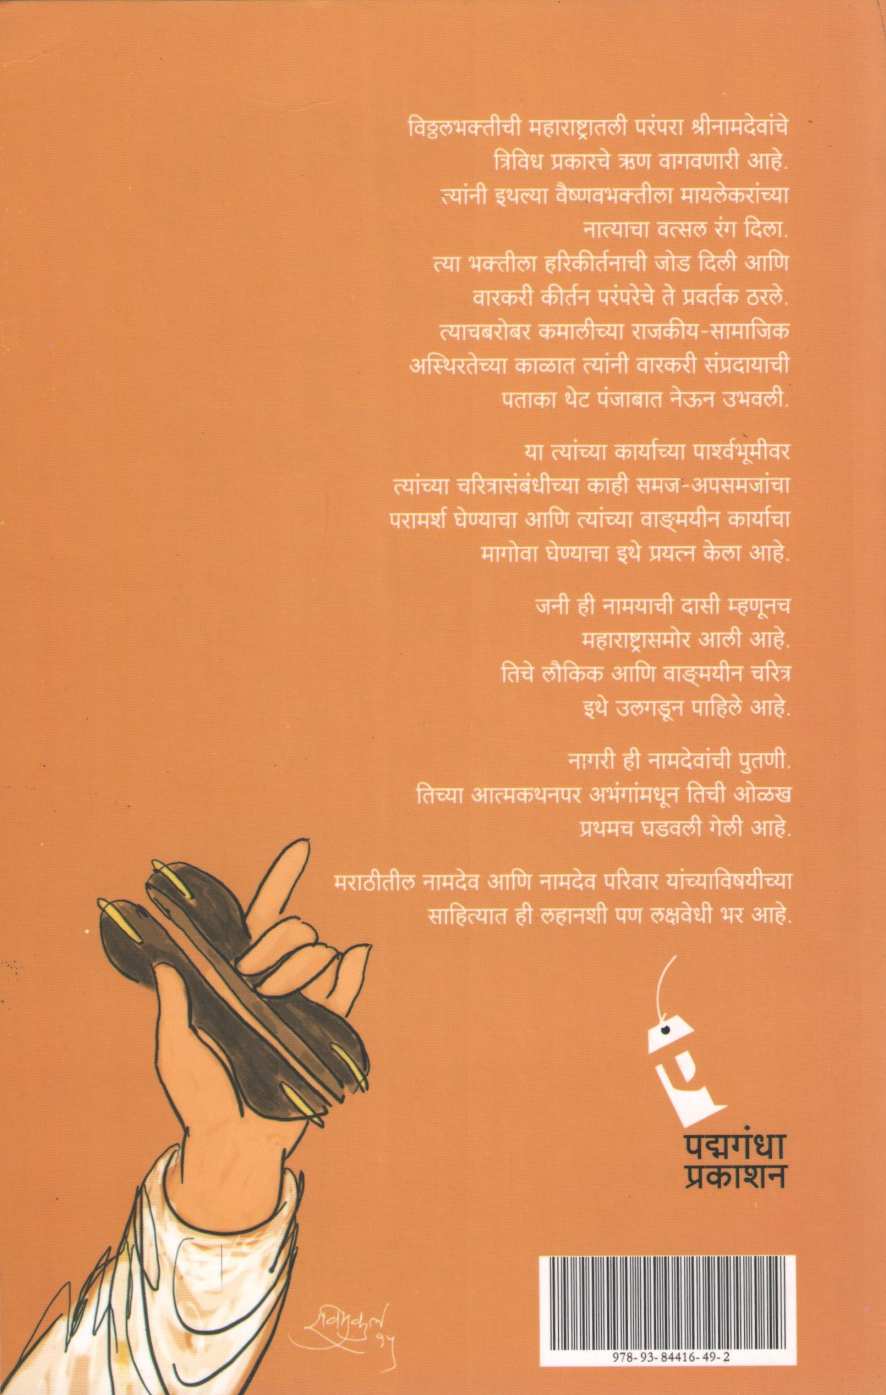 विठ्ठलभक्तीची महाराष्ट्रातली परंपरा श्रीनामदेवांचे
त्रिविध प्रकारचे ऋण वागवणारी आहे.
त्यांनी इथल्या वैष्णवभक्तीला मायलेकरांच्या
नात्याचा वत्सल रंग दिला.
त्या भक्तीला हरिकीर्तनाची जोड दिली आणि
वारकरी कीर्तन परंपरेचे ते प्रवर्तक ठरले.
त्याचबरोबर कमालीच्या राजकीय-सामाजिक
अस्थिरतेच्या काळात त्यांनी वारकरी संप्रदायाची
पताका थेट पंजाबात नेऊन उभवली.
या त्यांच्या कार्याच्या पार्श्वभूमीवर
त्यांच्या चरित्रासंबंधीच्या काही समज-अपसमजांचा
परामर्श घेण्याचा आणि त्यांच्या वाङ्‌मयीन कार्याचा
मागोवा घेण्याचा इथे प्रयत्न केला आहे.
जनी ही नामयाची दासी म्हणूनच
महाराष्ट्रासमोर आली आहे.
तिचे लौकिक आणि वाङ्‌मयीन चरित्र
इथे उलगडून पाहिले आहे.
नागरी ही नामदेवांची पुतणी.
तिच्या आत्मकथनपर अभंगांमधून तिची ओळख
प्रथमच घडवली गेली आहे.
मराठीतील नामदेव आणि नामदेव परिवार यांच्याविषयीच्या
साहित्यात ही लहानशी पण लक्षवेधी भर आहे.
पद्मगंधा
प्रकाशन
रविमुकुल
१५
978-93-84416-49-2